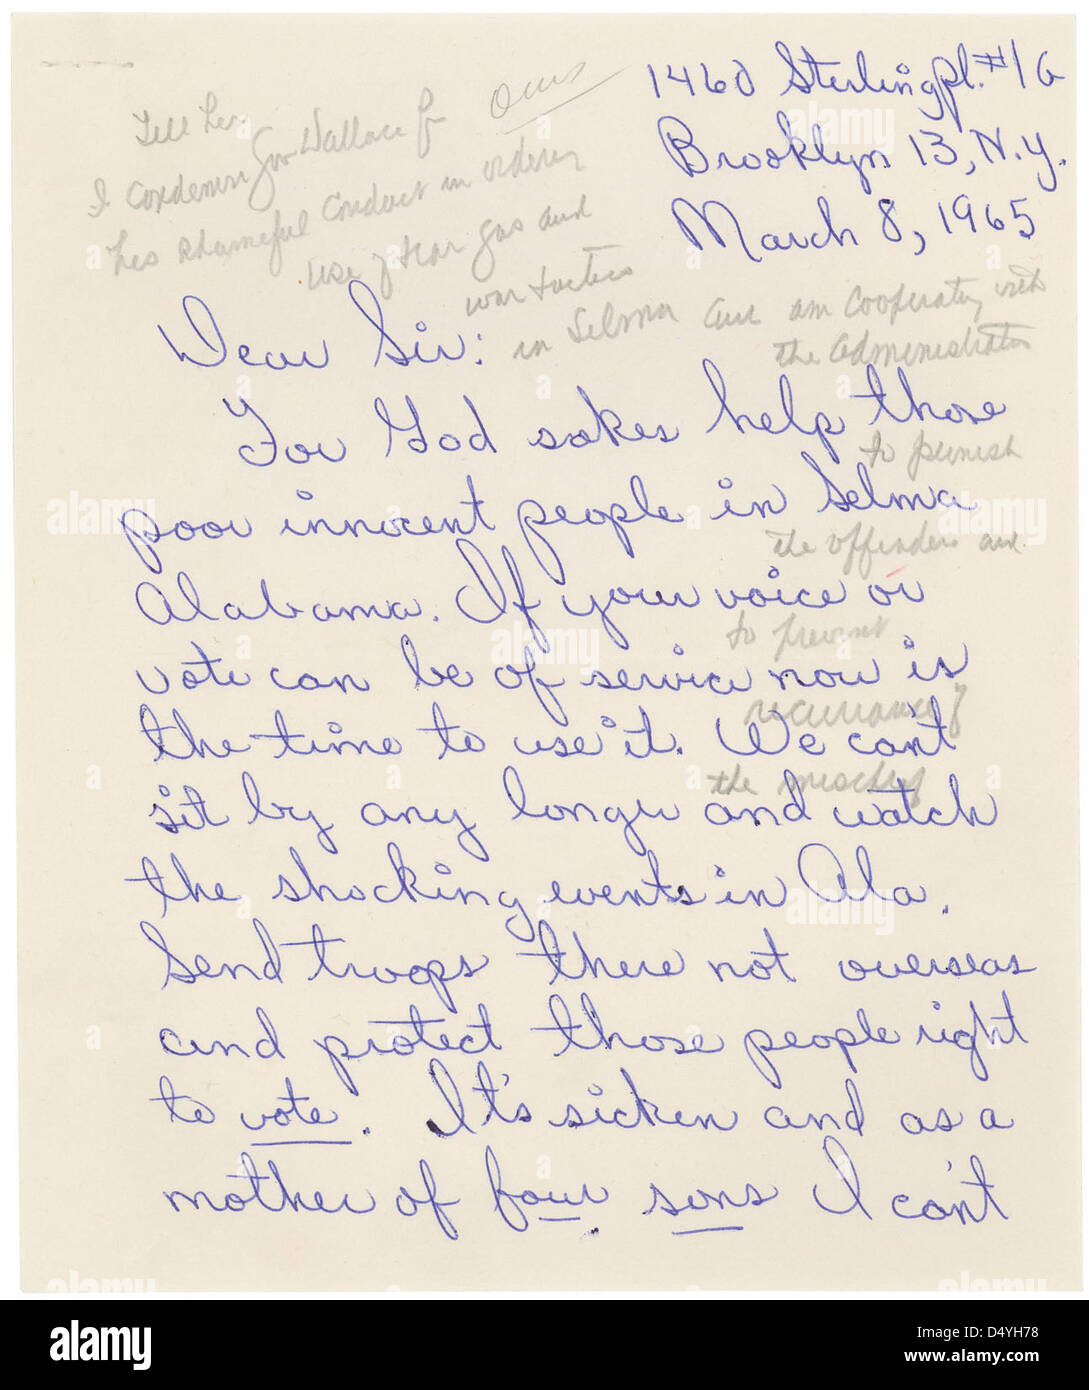 1460 Sterling pl. #1G
Brooklyn 13, N.Y.
March 8, 1965
Tell her
I condemn Gov Wallace f
his shameful conduct in orderin
use of tear gas and
war tactics
in Selma and am cooperating with
the administration
to punish
the offenders and
to prevent
recurrance of
the mischief
Dear Sir:
For God sakes help those
poor innocent people in Selma
Alabama. If your voice or
vote can be of service now is
the time to use it. We can't
sit by any longer and watch
the shocking events in Ala.
Send troops there not overseas
and protect those people right
to vote. It's sicken and as a
mother of four sons I can't
alamy
Image ID: D4YH78
www.alamy.com